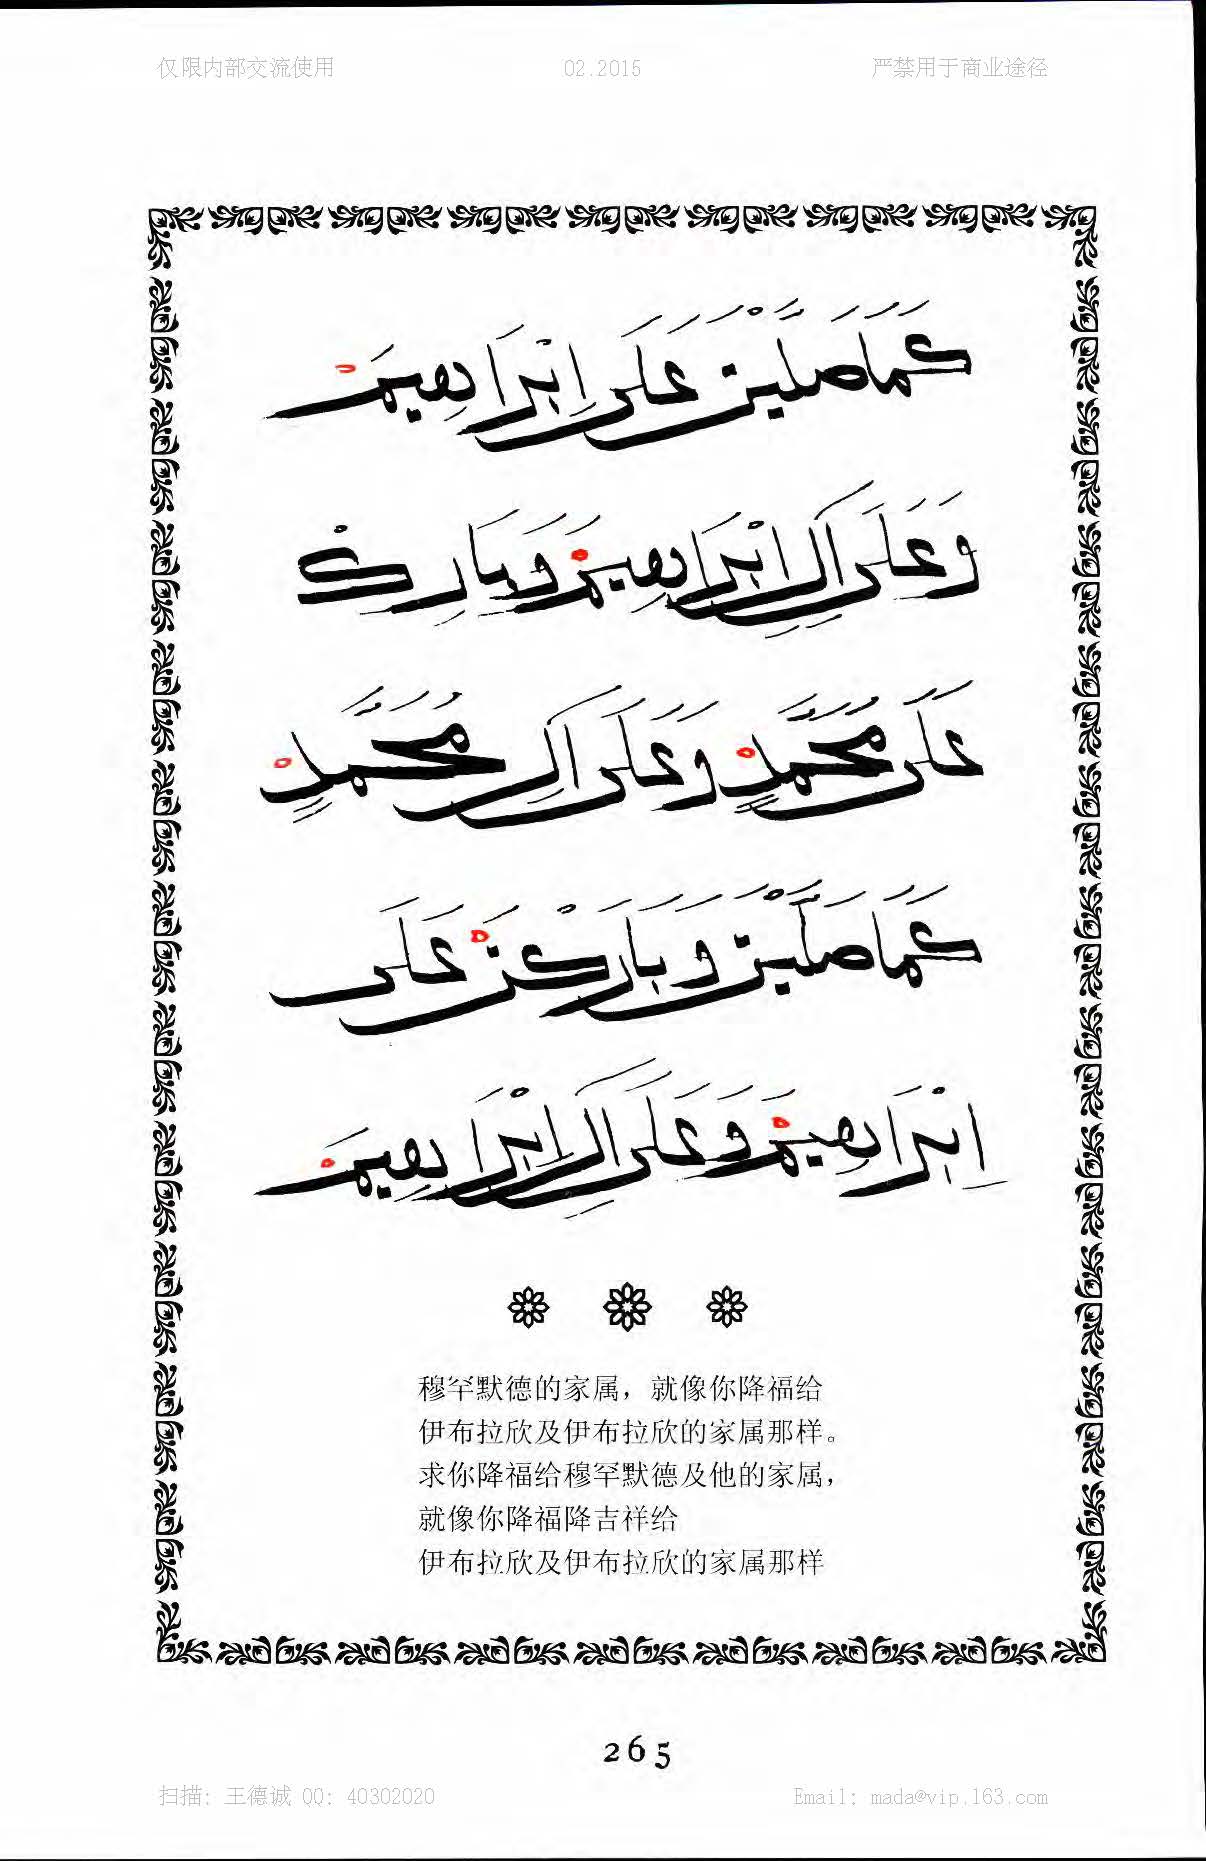 仅限内部交流使用 02.2015 严禁用于商业途径
كَمَا صَلَّيْتَ عَلَى اِبْرَاهِيمَ
وَعَلَى اٰلِ اِبْرَاهِيمَ وَبَارِكْ
عَلَى مُحَمَّدٍ وَعَلَى اٰلِ مُحَمَّدٍ
كَمَا صَلَّيْتَ وَبَارَكْتَ عَلَى
اِبْرَاهِيمَ وَعَلَى اٰلِ اِبْرَاهِيمَ
穆罕默德的家属，就像你降福给
伊布拉欣及伊布拉欣的家属那样。
求你降福给穆罕默德及他的家属，
就像你降福降吉祥给
伊布拉欣及伊布拉欣的家属那样
265
扫描：王德诚 QQ：40302020 Email：mada@vip.163.com